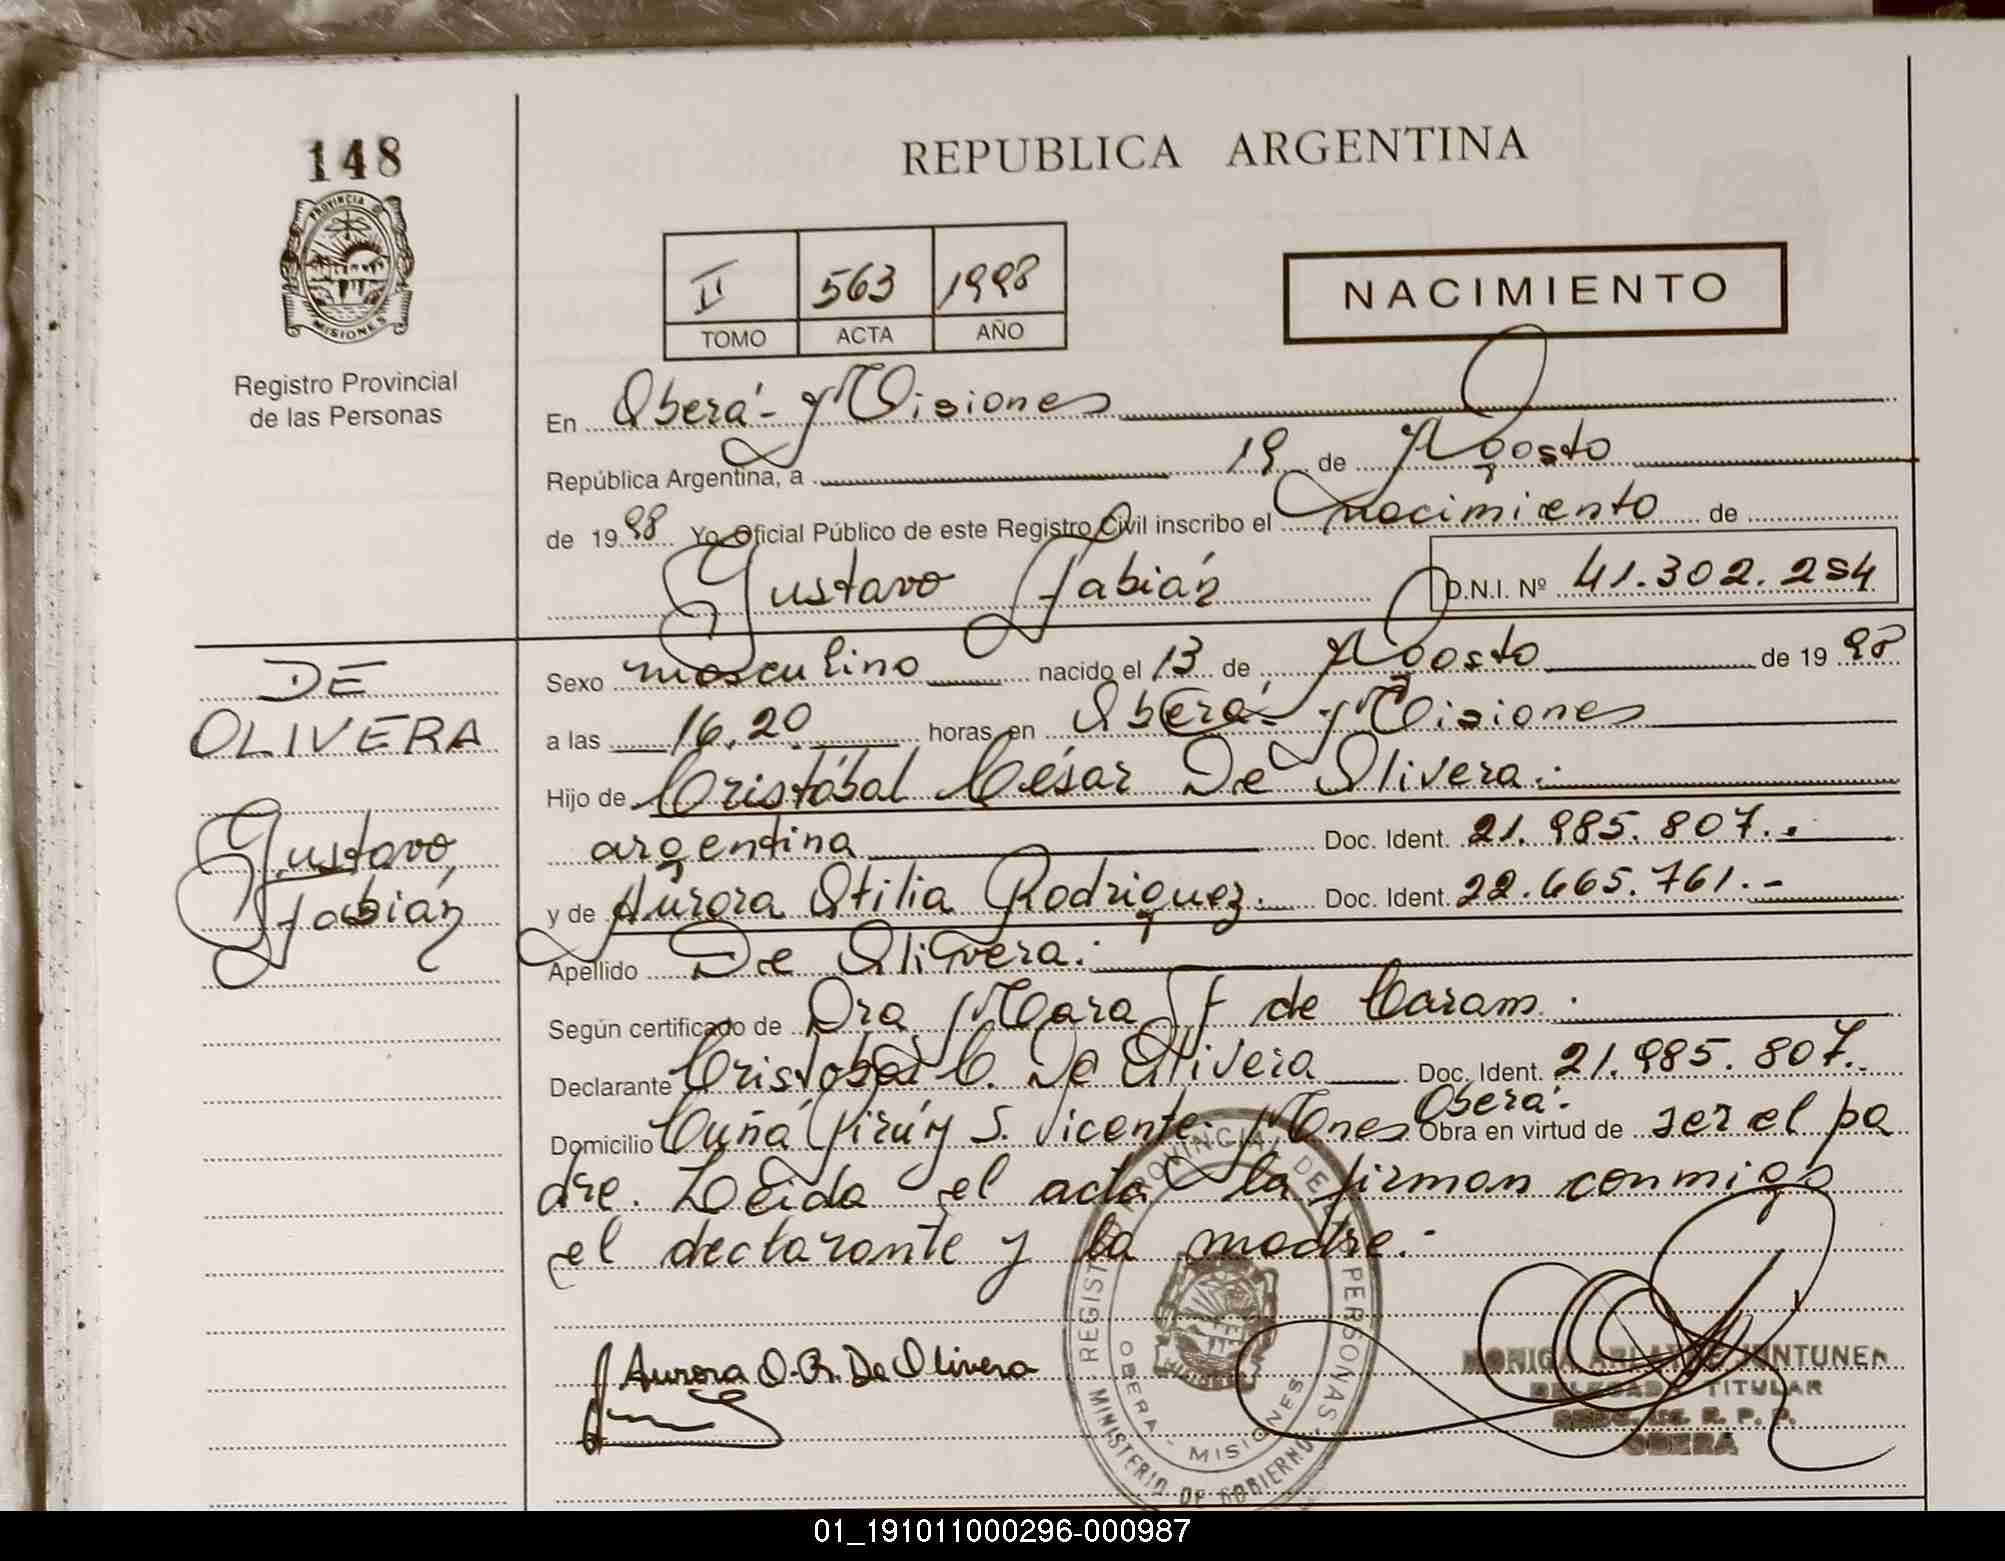 148
PROVINCIA DE
MISIONES
Registro Provincial
de las Personas
REPUBLICA ARGENTINA
II 563 1998
TOMO ACTA AÑO
NACIMIENTO
En Oberá - Misiones
República Argentina, a 19 de Agosto
de 1998 Yo Oficial Público de este Registro Civil inscribo el nacimiento de
Gustavo Fabián D.N.I. Nº 41.302.254
DE
OLIVERA
Gustavo
Fabián
Sexo masculino nacido el 13 de Agosto de 1998
a las 16.20 horas en Oberá - Misiones
Hijo de Cristóbal César De Olivera.-
argentina Doc. Ident. 21.985.807.-
y de Aurora Otilia Rodriguez. Doc. Ident. 22.665.761.-
Apellido De Olivera.-
Según certificado de Dra Mara F de Caram.
Declarante Cristobal C. De Olivera Doc. Ident. 21.985.807.-
Oberá-
Domicilio Cuñá Pirú y S. Vicente. Mnes Obra en virtud de ser el pa
dre. Leida el acta la firman conmigo
el declarante y la madre.-
Aurora O. R. De Olivera
REGISTRO PROVINCIAL DE LAS PERSONAS
MINISTERIO DE GOBIERNO
OBERA - MISIONES
MONICA JUNTUNEN
DELEGADA TITULAR
R. P. P.
OBERA
01_191011000296-000987